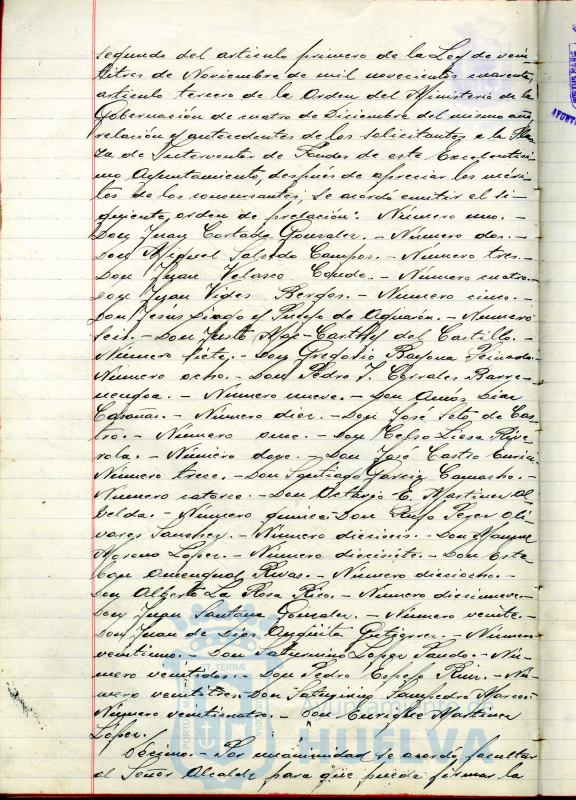 segundo del artículo primero de la Ley de vein-
titres de Noviembre de mil novecientos cuarenta,
artículo tercero de la Orden del Ministerio de la
Gobernación de cuatro de Diciembre del mismo año,
relación y antecedentes de los solicitantes a la Pla-
za de Interventor de Fondos de este Excelentísi-
mo Ayuntamiento, después de apreciar los méri-
tos de los concursantes, se acordó emitir el si-
guiente, orden de prelación: Número uno.-
Don Juan Cortada Gonzalez.- Número dos.-
Don Miguel Salcedo Campos.- Número tres.-
Don Juan Velasco Conde.- Número cuatro.-
Don Juan Vides Borges.- Número cinco.-
Don Jesús Liago y Pueyo de Aguarón.- Número
seis.- Don Justo Mac-Carthy del Castillo.-
Número siete.- Don Gregorio Bayona Peinado.-
Número ocho.- Don Pedro J. Corrales Barre-
nengoa.- Número nueve.- Don Amós Diaz
Casañas.- Número diez.- Don José Soto de Cas-
tro.- Número once.- Don Celso Liesa Rive-
rola.- Número doce.- Don José Castro
Número trece.- Don Santiago Garcia Camacho.-
Número catorce.- Don Arturo E. Martinez Al
belda.- Número quince.- Don Rufo Perez Oli-
vares Sanchez.- Número dieciseis.- Don Manuel
Moreno Lopez.- Número diecisiete.- Don Este
ban Amengual Rivas.- Número dieciocho.-
Don Alberto La Rosa Rico.- Número diecinueve.-
Don Juan Santana Gonzalez.- Número veinte.-
Don Juan de Dios Anguita Gutierrez.- Número
veintiuno.- Don Saturnino Lopez Pando.- Nú-
mero veintidos.- Don Pedro Espejo Ruiz.- Nú-
mero veintitres.- Don Saturnino Sampedro Marcos.-
Número veinticuatro.- Don Enrique Martinez
López.-
Décimo.- Por unanimidad se acordó facultar
al Señor Alcalde para que pueda firmar la
Ayuntamiento de
HUELVA